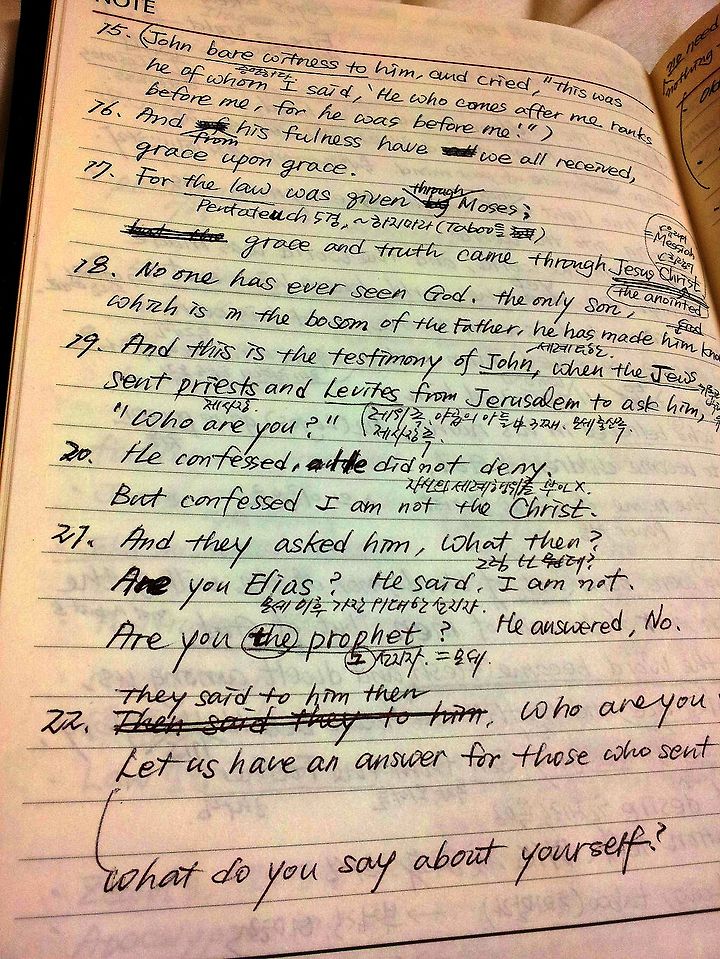 NOTE
15. (John bare witness to him, and cried, "This was
증언하다
he of whom I said, 'He who comes after me ranks
before me, for he was before me!'")
16. And from his fulness have we all received,
grace upon grace.
17. For the law was given through Moses;
Pentateuch 5경, ~하지마라 (Taboo를
grace and truth came through Jesus Christ.
= Messiah
the anointed
18. No one has ever seen God. the only son,
which is in the bosom of the Father, he has made him know
19. And this is the testimony of John, when the Jews
세례요한
sent priests and Levites from Jerusalem to ask him,
제사장
"Who are you?" (레위족, 야곱의 아들 中 3째. 모세 출신족
제사장족
20. He confessed, did not deny.
자신의 세례행위를 부인 X.
But confessed I am not the Christ.
21. And they asked him, What then?
그럼 넌 뭔데?
Are you Elias? He said, I am not.
모세 이후 가장 위대한 선지자.
Are you the prophet? He answered, No.
그 선지자. = 모세.
they said to him then
22. Then said they to him, Who are you
Let us have an answer for those who sent
What do you say about yourself?